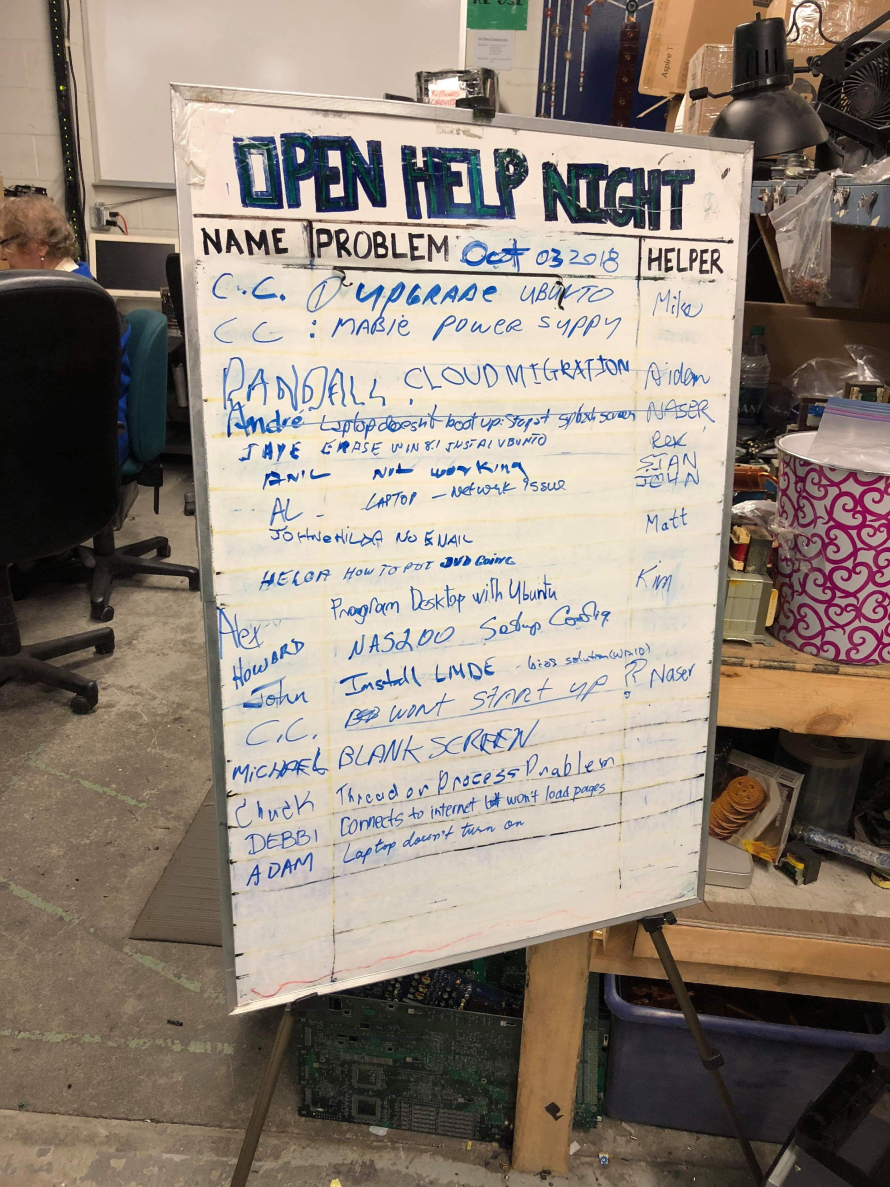 RE-USE
Aspire T
OPEN HELP NIGHT
NAME PROBLEM Oct 03 2018 HELPER
C.C. ① UPGRADE UBUNTO Mike
CC : MABIE POWER SUPPY
RANDALL CLOUD MIGRATION Aidan
Andre Laptop doesn't boot up: stops at splash screen NASER
JAYE ERASE WIN 8.1 INSTAL UBUNTO Rex
ANIL Not working STAN
AL - LAPTOP - Network issue JOHN
JOHN & HILDA NO EMAIL Matt
HELGA HOW TO PUT DVD Going
Alex Program Desktop with Ubuntu Kim
HOWARD NAS200 Setup Config.
John Install LMDE - bios solution
C.C. WONT START UP ?? Naser
MICHAEL BLANK SCREEN
Chuck Thread or Process Problem
DEBBI Connects to internet but won't load pages
ADAM Laptop doesn't turn on